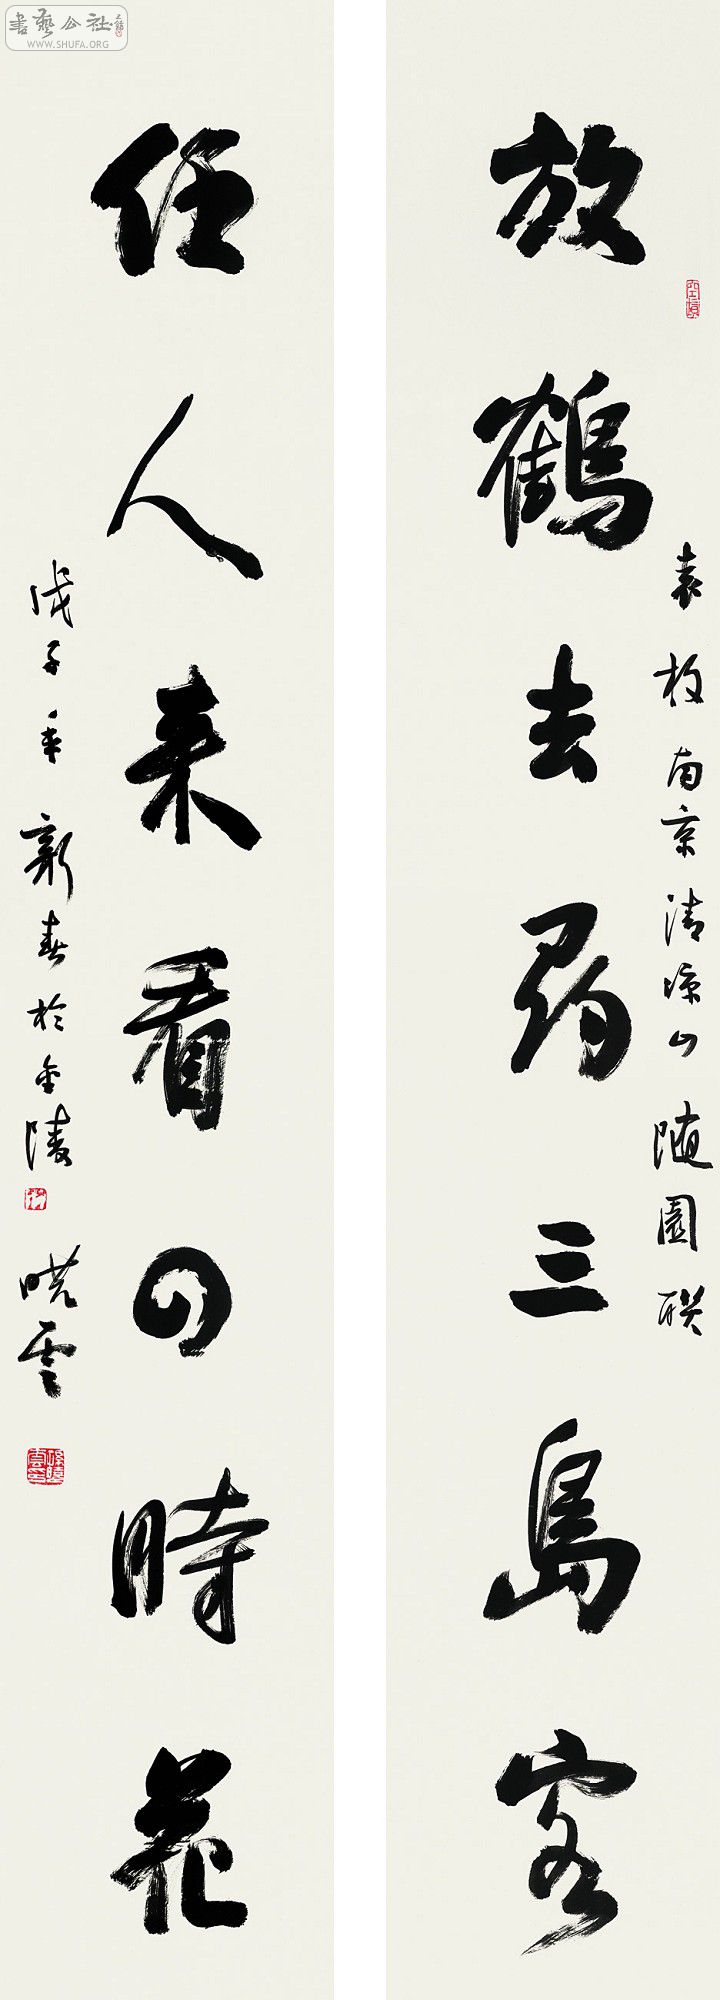 放鶴去尋三島客
袁枚南京清凉山随園联
任人来看四時花
戊子年新春於金陵
晓雲
書藝公社
WWW.SHUFA.ORG